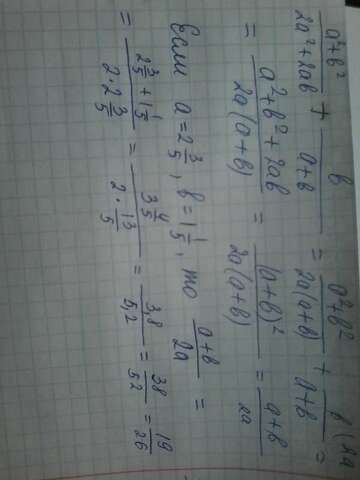 a²+b²/2a²+2ab + b/a+b = a²+b²/2a(a+b) + b(2a/a+b =
= a²+b²+2ab/2a(a+b) = (a+b)²/2a(a+b) = a+b/2a
Если a=2 3/5, b=1 1/5, то a+b/2a =
= 2 3/5 + 1 1/5/2·2 3/5 = 3 4/5/2·13/5 = 3,8/5,2 = 38/52 = 19/26